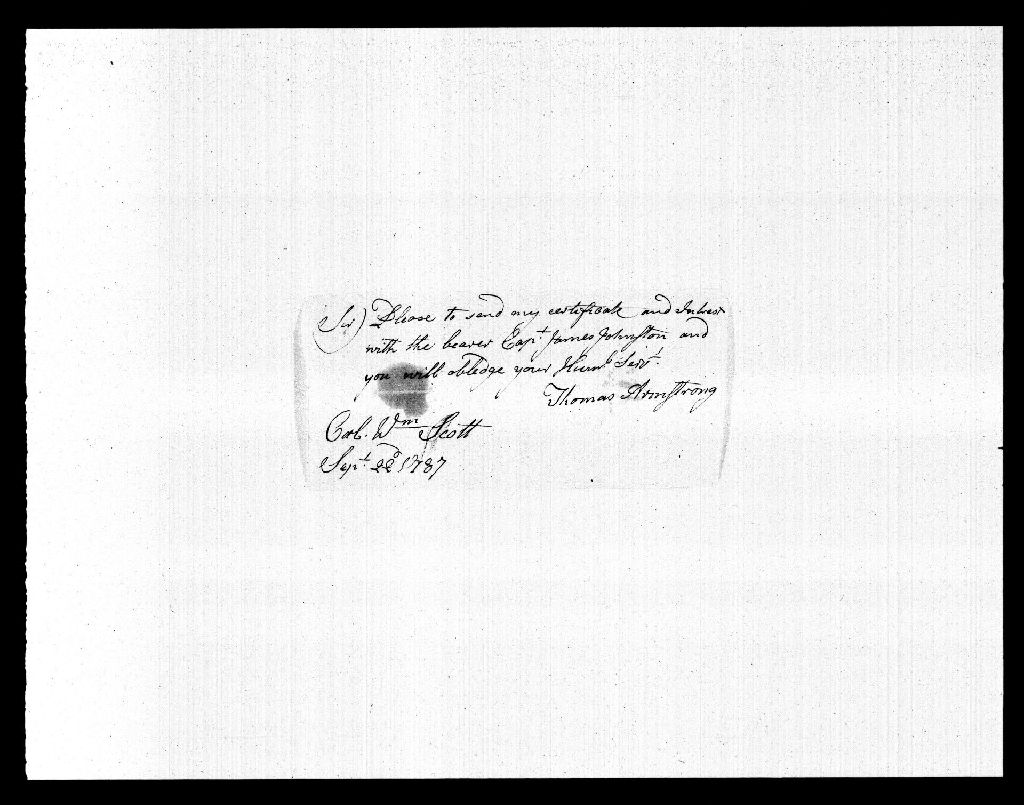 Sir) Please to send my certificate and Intrest
with the bearer Capt James Johnston and
you will obledge your Humb Servt
Thomas Armstrong
Coll. Wm Scott
Sept 22d 1787